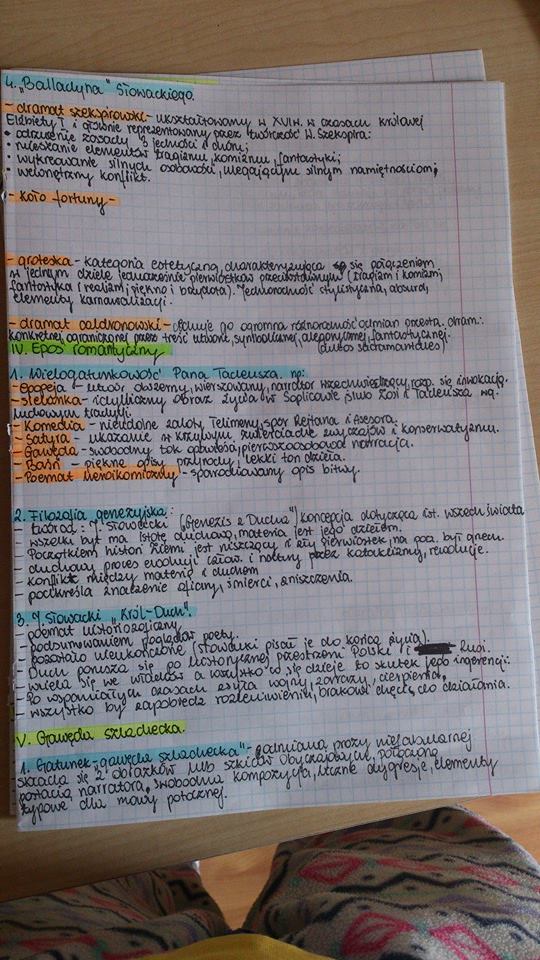 4. „Balladyna" Słowackiego.
- dramat szekspirowski - ukształtowany w XVI w. w czasach królowej
Elżbiety I i głównie reprezentowany przez twórczość W. Szekspira:
• odrzucenie zasady 3 jedności i chóru;
• mieszanie elementów tragizmu, komizmu, fantastyki;
• wykreowanie silnych osobowości, ulegającym silnym namiętnościom;
• wewnętrzny konflikt.
- koło fortuny -
- groteska - kategoria estetyczna, charakteryzująca się połączeniem
w jednym dziele jednocześnie pierwiastków przeciwstawnym (tragizm i komizm,
fantastyka i realizm, piękno i brzydota). Jednorodność stylistyczna, absurd,
elementy karnawalizacji.
- dramat calderonowski - cechuje go ogromna różnorodność odmian przestrz. dram.:
konkretnej, ograniczonej przez treść utworu, symbolicznej, alegorycznej, fantastycznej.
IV. Epos romantyczny
1. Wielogatunkowość Pana Tadeusza, np:
- Epopeja - utwór obszerny, wierszowany, narrator wszechwiedzący, rozp. się inwokacją.
- sielanka - idylliczny obraz życia w Soplicowie, ślub Zosi i Tadeusza wg.
ludowym tradycji.
- Komedia - nieudolne zaloty Telimeny, spór Rejtana i Asesora.
- Satyra - ukazanie w krzywym zwierciadle zwyczajów i konserwatyzmu.
- Gawęda - swobodny tok opowieści, pierwszoosobowa narracja.
- Baśń - piękne opisy przyrody, lekki ton dzieła.
- Poemat heroikomiczny - sparodiowany opis bitwy.
2. Filozofia genezyjska:
- twórca: J. Słowacki („Genezis z Ducha") koncepcja dotycząca ist. wszechświata
- wszelki byt ma istotę duchową, materia jest jego dziełem.
- Początkiem historii Ziemi jest niszczący i zły pierwiastek, na pocz. był gniew.
- duchowy proces ewolucji człow. i natury przez kataklizmy, rewolucje.
- konflikt między materią i duchem
- podkreśla znaczenie ofiary, śmierci, zniszczenia.
3. J. Słowacki „Król-Duch".
- poemat historiozoficzny
- podsumowaniem poglądów poety.
- pozostało nieukończone (Słowacki pisał je do końca życia).
- Duch porusza się po historycznej przestrzeni Polski i Rusi.
- wciela się we władców a wszystko co się dzieje to skutek jego ingerencji.
- Po wspaniałych czasach zsyła wojny, zarazy, cierpienia,
- wszystko by zapobiedz rozleniwieniu, brakowi chęci do działania.
V. Gawęda szlachecka.
1. Gatunek „gawęda szlachecka" - odmiana prozy niefabularnej
składa się z obrazków lub szkiców obyczajowych, połączone
postacią narratora, swobodna kompozycja, liczne dygresje, elementy
typowe dla mowy potocznej.